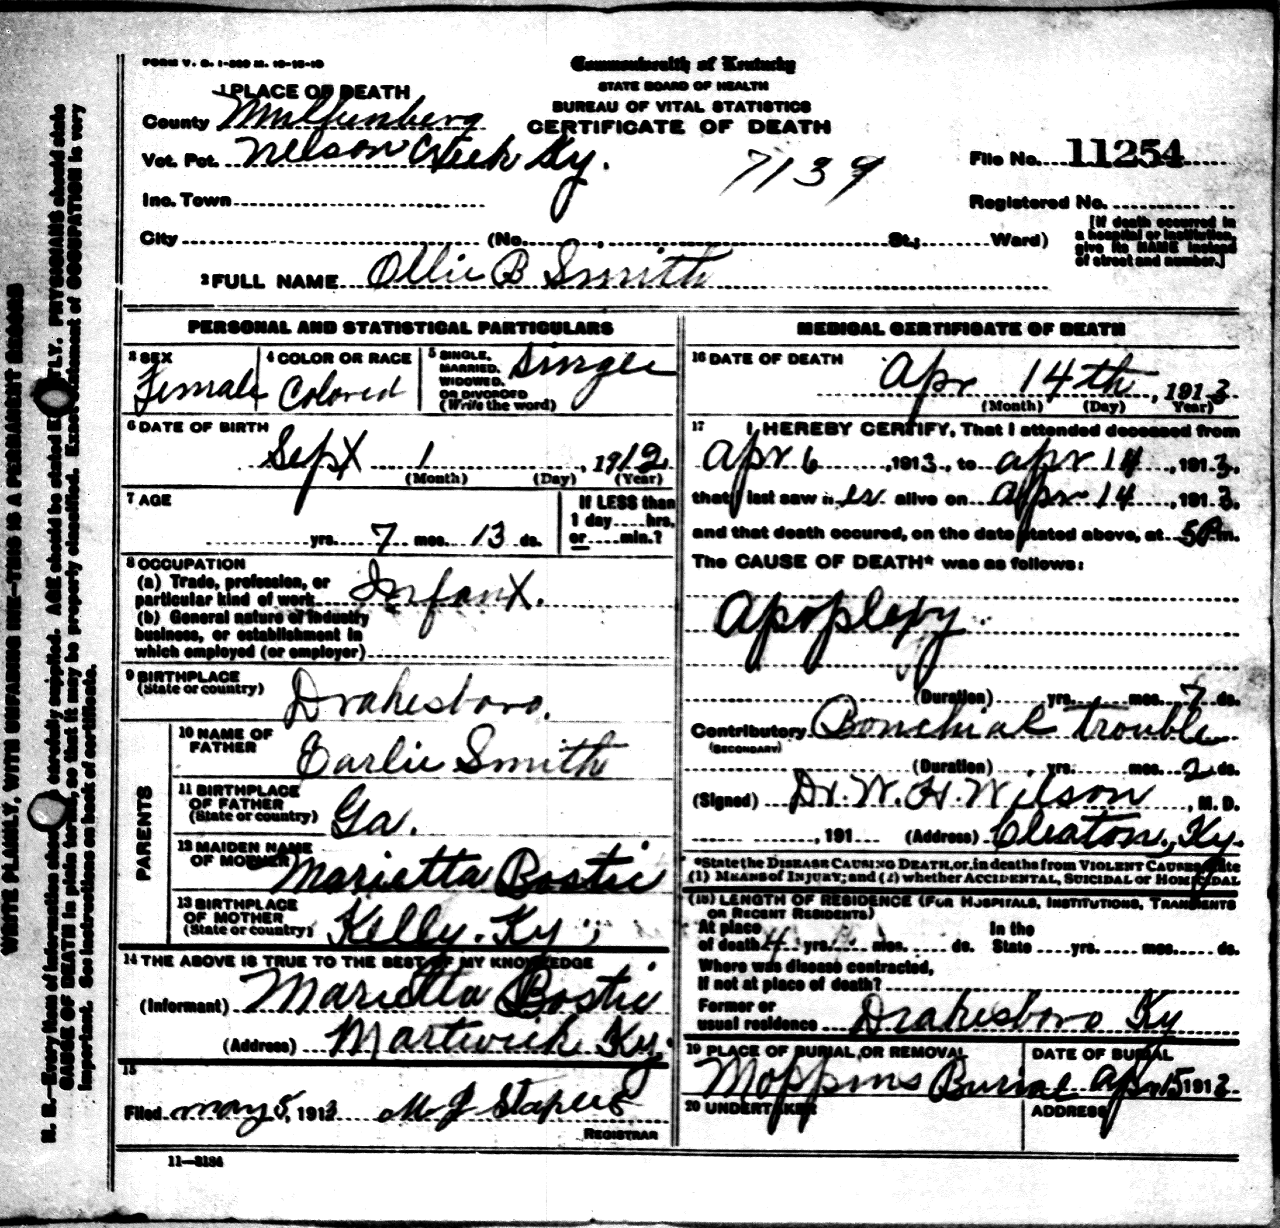 FORM V. S. 1-
Commonwealth of Kentucky
STATE BOARD OF HEALTH
BUREAU OF VITAL STATISTICS
CERTIFICATE OF DEATH
1 PLACE OF DEATH
County Mulhenberg
Vot. Pct. Nelson Creek Ky.
Inc. Town
City (No. , St.; Ward)
7139
File No. 11254
Registered No.
[If death occurred in
a hospital or institution,
give its NAME instead
of street and number.]
2 FULL NAME Ollie B Smith
PERSONAL AND STATISTICAL PARTICULARS
3 SEX
Female
4 COLOR OR RACE
Colored
5 SINGLE,
MARRIED,
WIDOWED,
OR DIVORCED
(Write the word)
Single
6 DATE OF BIRTH
Sept 1 , 1912
(Month) (Day) (Year)
7 AGE
yrs. 7 mos. 13 ds.
If LESS than
1 day hrs.
or min.?
8 OCCUPATION
(a) Trade, profession, or
particular kind of work Infant.
(b) General nature of industry
business, or establishment in
which employed (or employer)
9 BIRTHPLACE
(State or country)
Drakesboro.
PARENTS
10 NAME OF
FATHER
Earlie Smith
11 BIRTHPLACE
OF FATHER
(State or country)
Ga.
12 MAIDEN NAME
OF MOTHER
Marietta Bostic
13 BIRTHPLACE
OF MOTHER
(State or country)
Kelly. Ky ;
14 THE ABOVE IS TRUE TO THE BEST OF MY KNOWLEDGE
(Informant) Marietta Bostic
(Address) Martwick Ky.
15
Filed May 5, 1913 M J Staples
REGISTRAR
11—3184
MEDICAL CERTIFICATE OF DEATH
16 DATE OF DEATH
Apr 14th , 1913
(Month) (Day) Year)
17 I HEREBY CERTIFY, That I attended deceased from
Apr 6 , 1913, to apr 14 , 1913,
that I last saw h er alive on apr 14 , 1913,
and that death occured, on the date stated above, at 5 P m.
The CAUSE OF DEATH* was as follows:
Apoplexy.
(Duration) yrs. mos. 7 ds.
Contributory Bonchial trouble
(SECONDARY)
(Duration) yrs. mos. 2 ds.
(Signed) Dr. W. H. Wilson , M. D.
, 191 (Address) Cleaton, Ky.
*State the DISEASE CAUSING DEATH, or, in deaths from VIOLENT CAUSES, state
(1) MEANS of INJURY; and (2) whether ACCIDENTAL, SUICIDAL or HOMICIDAL
(18) LENGTH OF RESIDENCE (FOR HOSPITALS, INSTITUTIONS, TRANSIENTS
OR RECENT RESIDENTS)
At place
of death yrs. mos. ds.
In the
State yrs. mos. ds.
Where was disease contracted,
If not at place of death?
Former or
usual residence Drakesboro Ky
19 PLACE OF BURIAL OR REMOVAL
Moppins Burial
DATE OF BURIAL
apr 15 1913
20 UNDERTAKER
ADDRESS
WRITE PLAINLY, WITH UNFADING INK—THIS IS A PERMANENT RECORD
N. B.—Every item of information should be carefully supplied. AGE should be stated EXACTLY. PHYSICIANS should state
CAUSE OF DEATH in plain terms, so that it may be properly classified. Exact statement of OCCUPATION is very
important. See instructions on back of certificate.